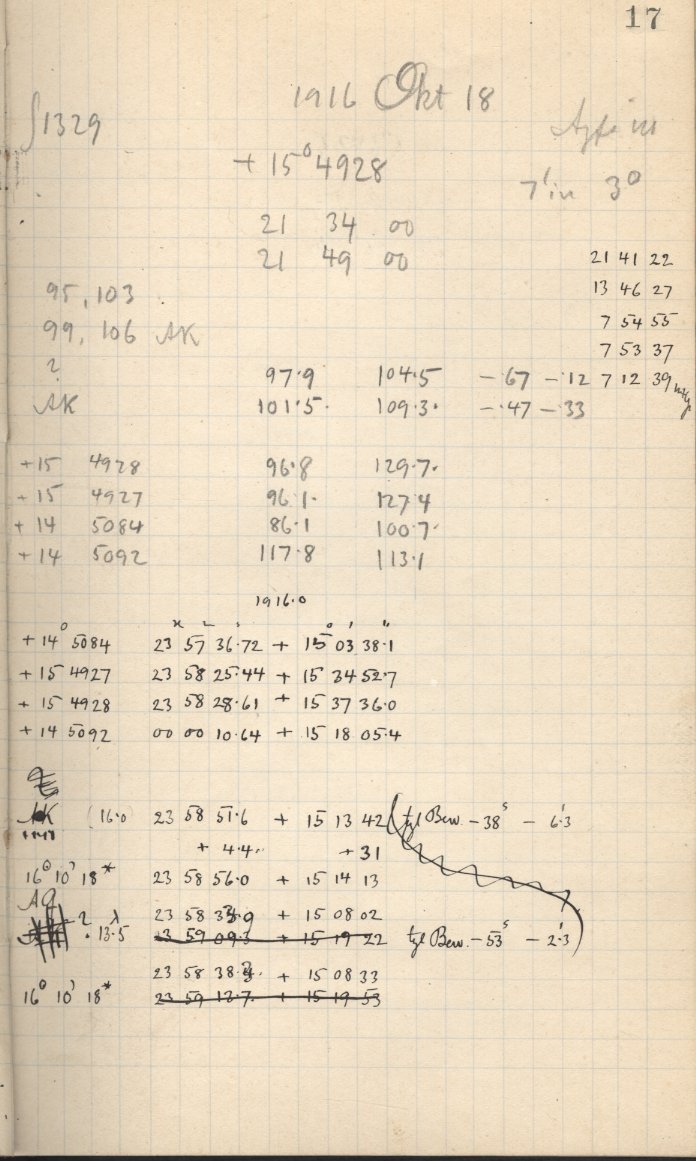 17
1916 Okt 18
1329
+ 15° 4928
7' in 3°
21 34 00
21 49 00
21 41 22
13 46 27
95, 103
7 54 55
99, 106 AK
7 53 37
?
97.9 104.5 - .67 - .12 7 12 39
AK 101.5 109.3 - .47 - .33
+15 4928 96.8 129.7
+15 4927 96.1 127.4
+14 5084 86.1 100.7
+14 5092 117.8 113.1
1916.0
h m s ° ' "
+14° 5084 23 57 36.72 + 15 03 38.1
+15 4927 23 58 25.44 + 15 34 52.7
+15 4928 23 58 28.61 + 15 37 36.0
+14 5092 00 00 10.64 + 15 18 05.4
AK (16.0) 23 58 51.6 + 15 13 42 tgl Bew. -38s - 6'.3
+ 4.4 +31
16h 10' 18* 23 58 56.0 + 15 14 13
AQ
23 58 33.9 + 15 08 02
? 13.5 23 59 09.3 + 15 19 22 tgl Bew. -53s - 2'.3
23 58 38.3 + 15 08 33
16° 10' 18* 23 59 13.7 + 15 19 53